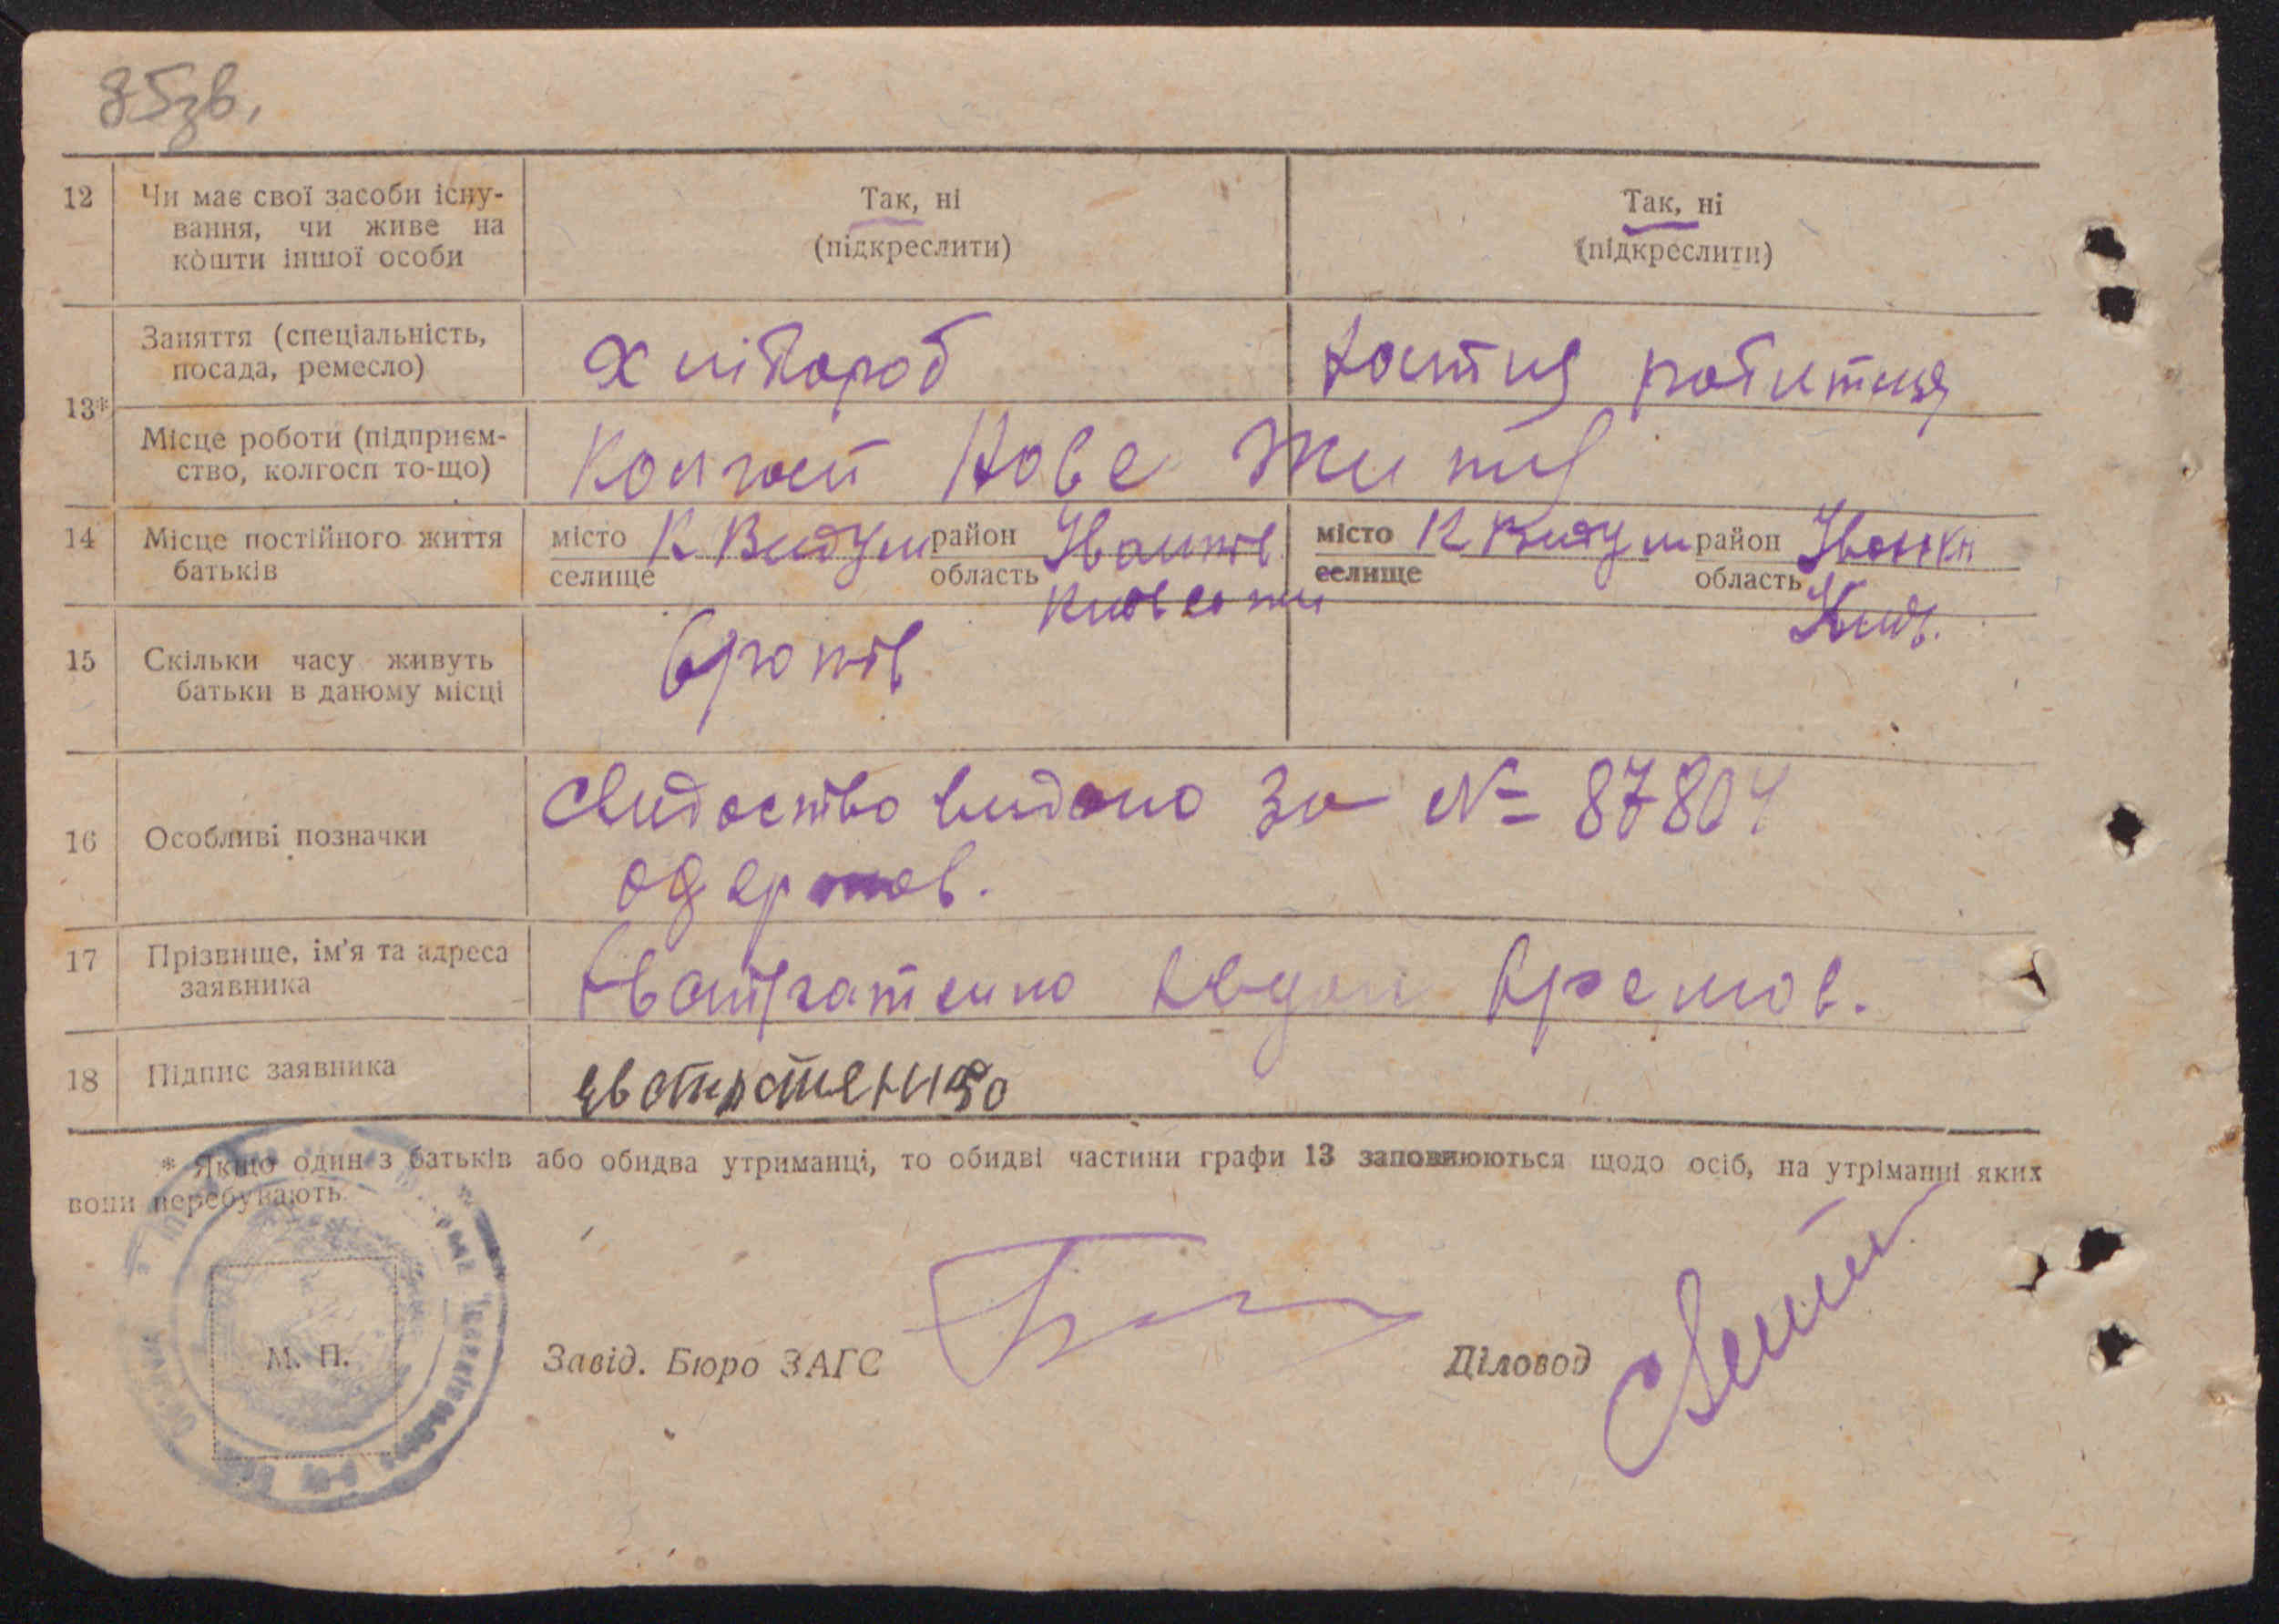 85зв.
12 Чи має свої засоби існу-
вання, чи живе на
кошти іншої особи
Так, ні
(підкреслити)
Так, ні
(підкреслити)
13*
Заняття (спеціальність,
посада, ремесло)
Хлібороб
робитниця
Місце роботи (підприєм-
ство, колгосп то-що)
Колгосп Нове Життя
14 Місце постійного життя
батьків
місто К Видум район Іванків
селище область Київсоти
місто К Видум район Іванкі
селище область Київ.
15 Скільки часу живуть
батьки в даному місці
16 Особливі позначки
Свидоство видано за № 87804
одержав.
17 Прізвище, ім'я та адреса
заявника
Евстратенко Явдон Єремов.
18 Підпис заявника
Евстратенко
* Якщо один з батьків або обидва утриманці, то обидві частини графи 13 заповнюються щодо осіб, на утріманні яких
вони перебувають.
М. П.
Завід. Бюро ЗАГС
Діловод